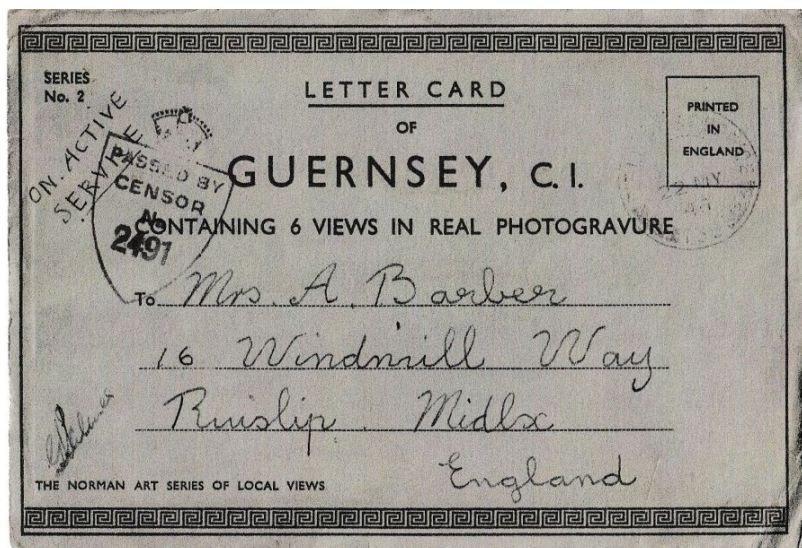 SERIES
No. 2
LETTER CARD
OF
GUERNSEY, C.I.
CONTAINING 6 VIEWS IN REAL PHOTOGRAVURE
PRINTED
IN
ENGLAND
ON. ACTIVE
SERVICE
PASSED BY
CENSOR
No.
2491
22 MY
To Mrs. A. Barber
16 Windmill Way
Ruislip. Midlx
England
THE NORMAN ART SERIES OF LOCAL VIEWS